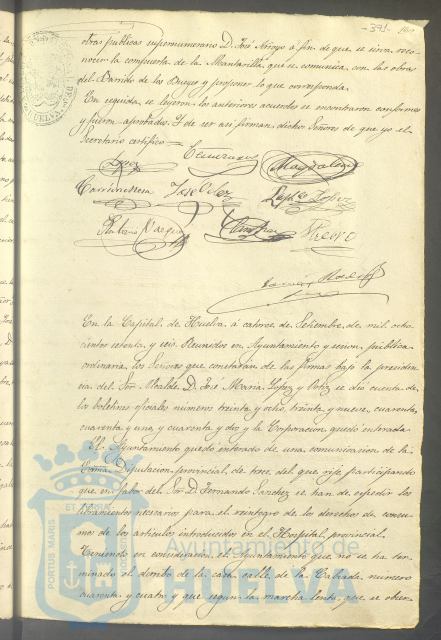 -371-
obras publicas supernumerario D. José Arroyo á fin de que se sirva reco
nocer la compuerta de la Mantarilla que se comunica con las obras
del Barrido de los Bueyes y proponer lo que corresponda.
En seguida se leyeron los anteriores acuerdos se encontraron conformes
y fueron aprobados. Y de ser asi firman dichos Señores de que yo el
Secretario certifico =
Lopez
Magdalena
Garrido
José
Lopez Lopez
En la Capital de Huelva á catorce de Setiembre de mil ocho
cientos setenta y seis. Reunidos en Ayuntamiento y sesion publica
ordinaria los Señores que constarán de las firmas bajo la presiden
cia del Sor Alcalde D. José Maria Lopez y Ortiz se dió cuenta de
los boletines oficiales numeros treinta y ocho, treinta y nueve, cuarenta,
cuarenta y uno, y cuarenta y dos y la Corporacion quedó enterada.
El Ayuntamiento quedó enterado de una comunicacion de la
Excma. Diputacion provincial, de trece del que rije, participando
que en favor del Sor D. Fernando Sanchez se han de expedir los
libramientos necesarios para el reintegro de los derechos de consu
mos de los articulos introducidos en el Hospital provincial.
Teniendo en consideracion el Ayuntamiento que no se ha ter
minado el derribo de la casa calle de la Calzada numero
cuarenta y cuatro y que segun la marcha lenta que se obser
PORTUS MARIS
ET TERRÆ
CUSTODIA
Ayuntamiento de
HUELVA